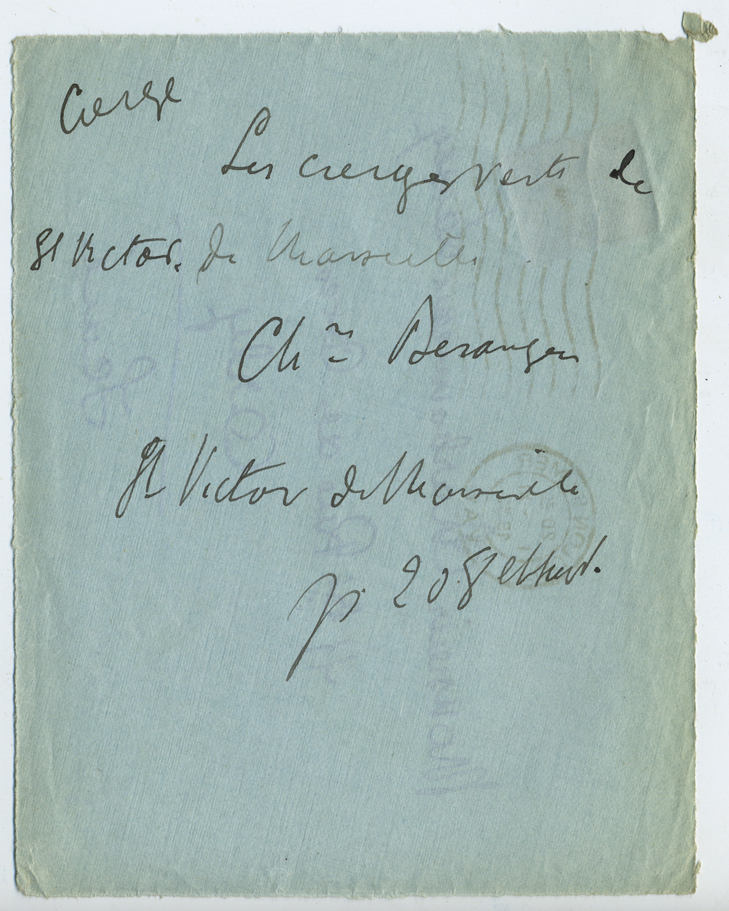 Cierge
Les cierges verts de
St Victor. de Marseille
Ch ne Beranger
St Victor de Marseille
p. 208